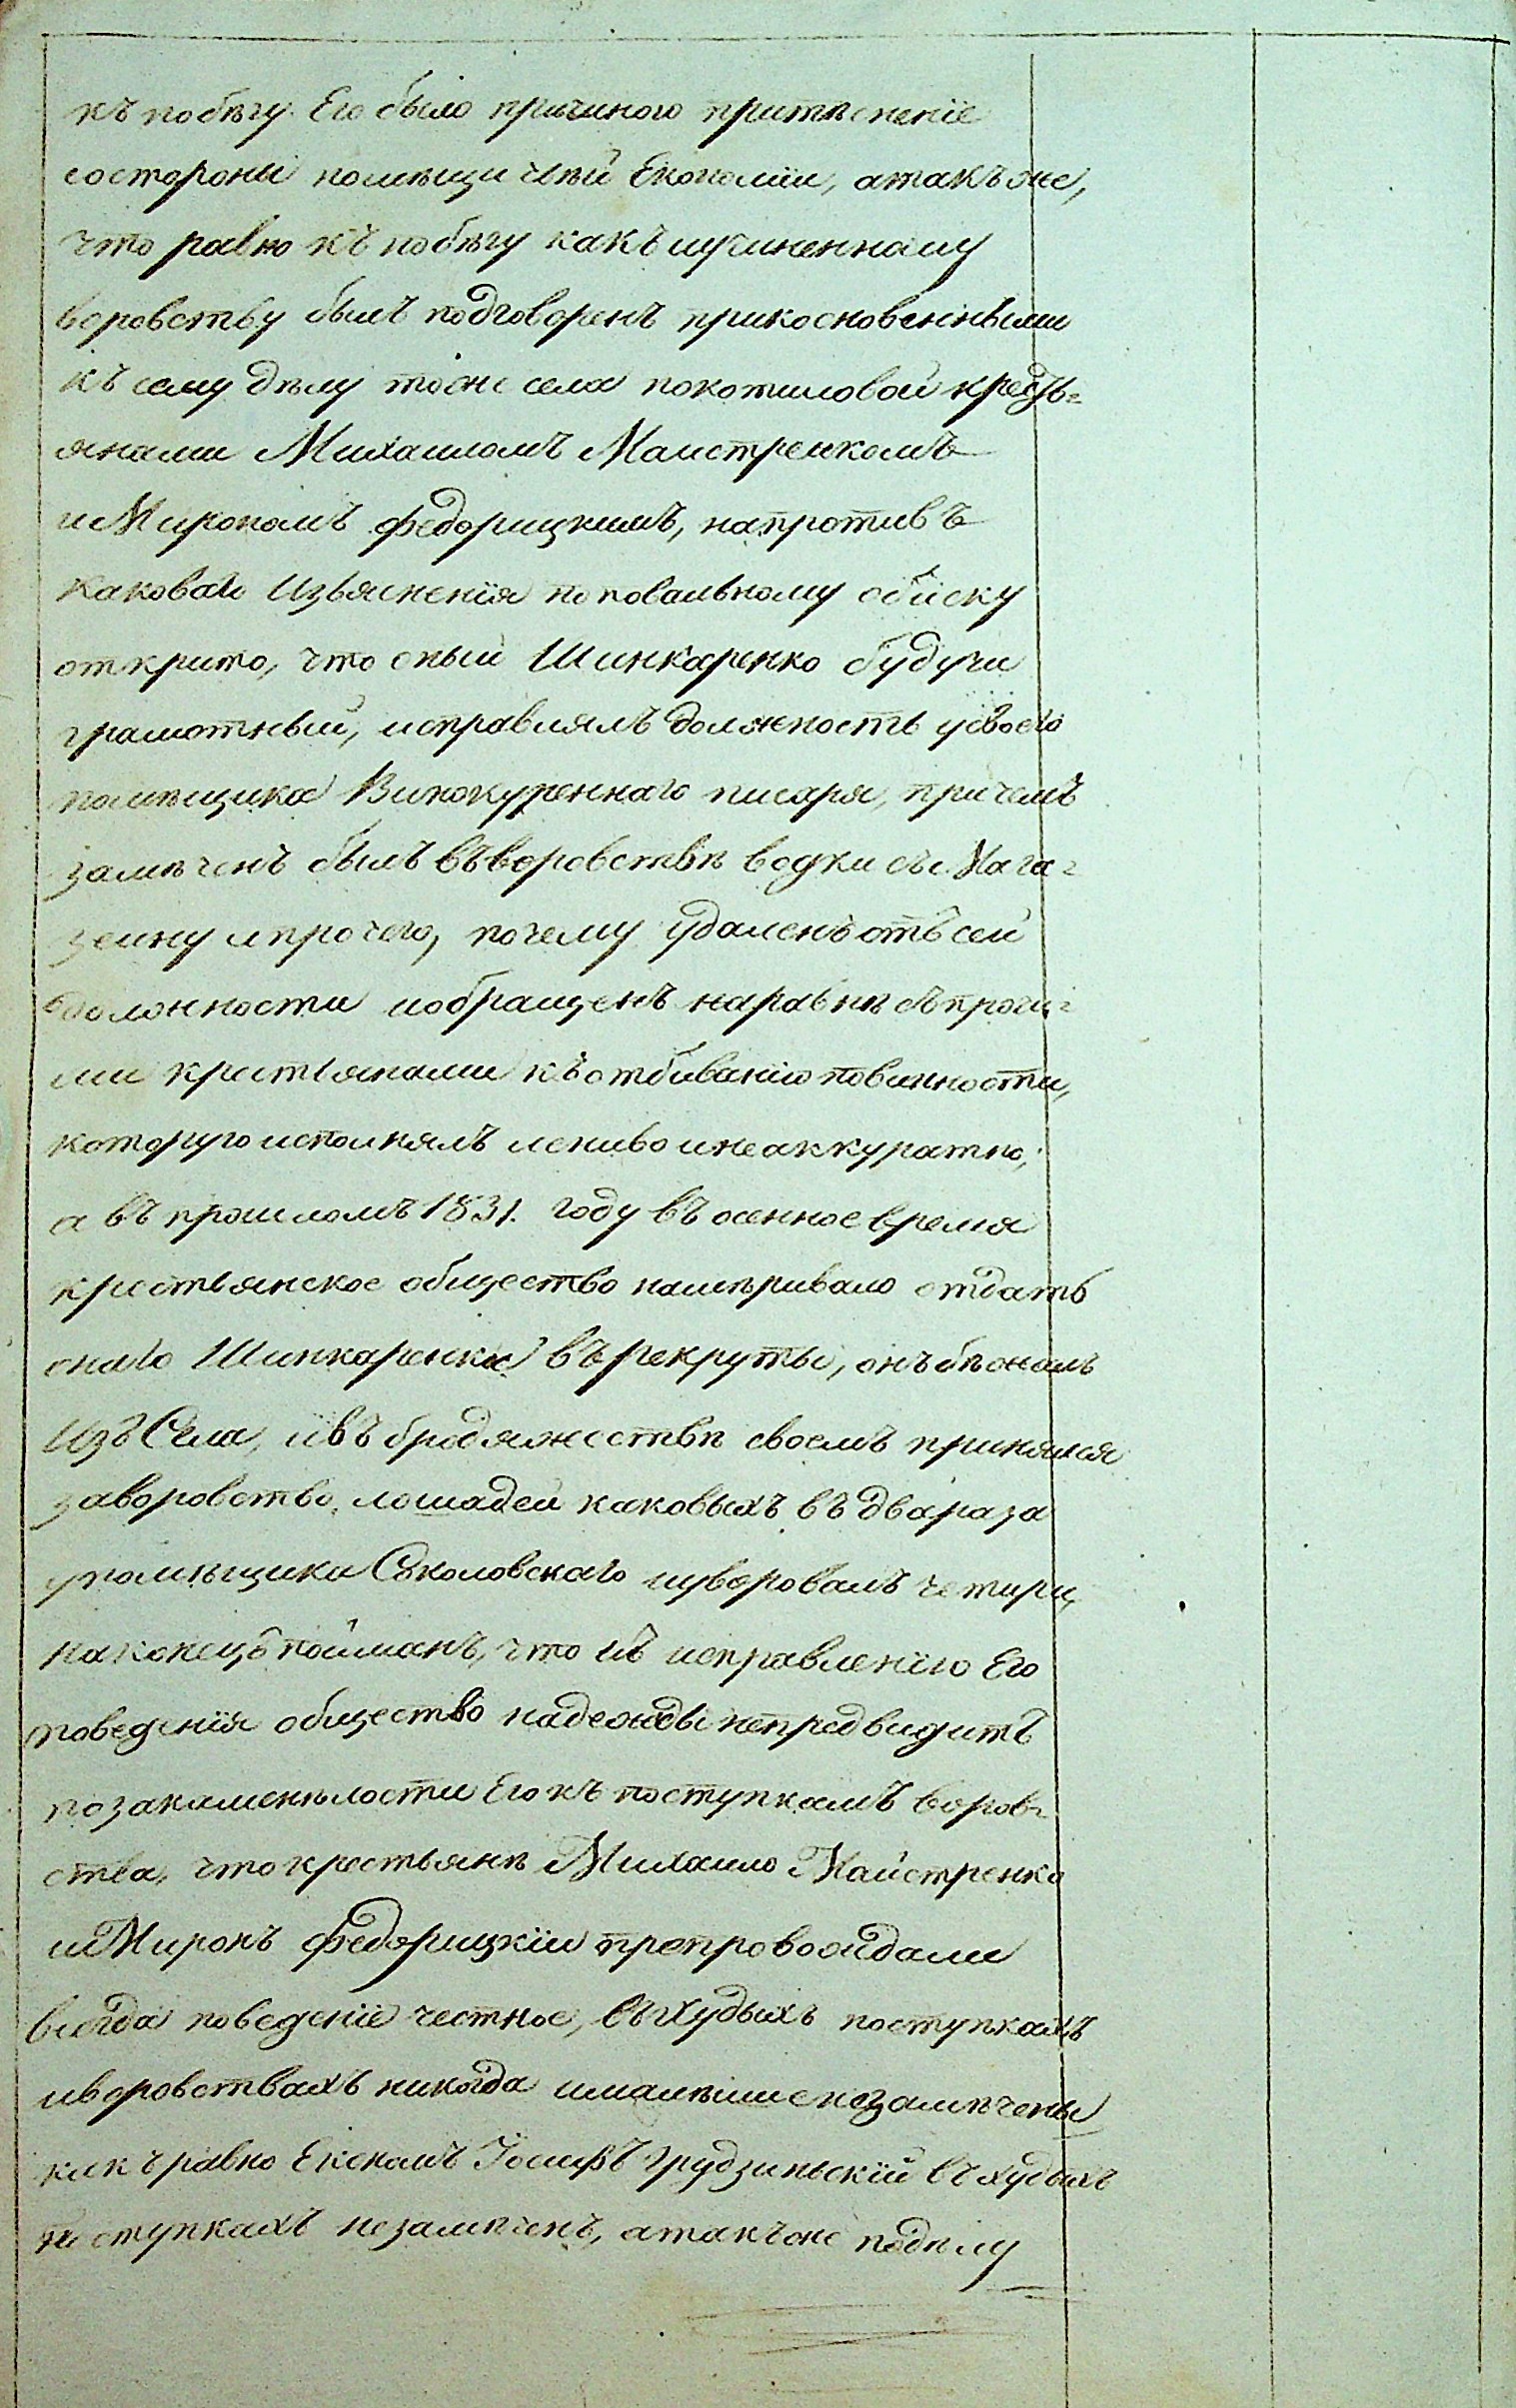 къ побѣгу Его было причиною притѣсненіе
состороны помѣщичѣй Економіи, атакъже,
что равно къ побѣгу какъ иучиненному
воровству былъ подговоренъ прикосновенными
къ сему дѣлу тоже села покотиловой кресть=
янами Михаиломъ Маистренкомъ
и Мирономъ Федорицкимъ, напротивъ
каковаго Изьясненія поповальному обиску
открито, что оный Шинкаренко будучи
грамотный, исправлялъ должность усвоего
помѣщика Винокуреннаго писаря, причемъ
замѣченъ былъ въворовствѣ водки съ Мага=
зеину ипрочего, почему удаленъ отъ сей
должности иобращенъ наравнѣ съпрочи=
ми крестьянами къ отбиванію повинности,
которую исполнялъ лениво инеаккуратно,
а въ прошломъ 1831. году въ осенное время
крестьянское общество намѣривало отдать
онаго Шинкаренка въ рекруты, онъ бѣжалъ
Изъ Села, ивъ бродяжествѣ своемъ принялся
заворовство лошадей каковыхъ въ двараза
упомѣщика Соколовскаго иуворовалъ четири,
наконецъ пойманъ, что къ исправленію Его
поведенія общество надежды непредвидитъ
позакаменѣлости Его къ поступкамъ воров=
ства, что крестьянѣ Михаило Майстренко
и Миронъ Федорицкій препровождали
всегда поведеніе честное, въ худыхъ поступкахъ
иворовствахъ никогда ималѣйше незамѣчены
какъ равно Екеномъ Іосифъ Грудзиньскій въ худыхъ
поступкахъ незамѣченъ, атакъже подѣлу